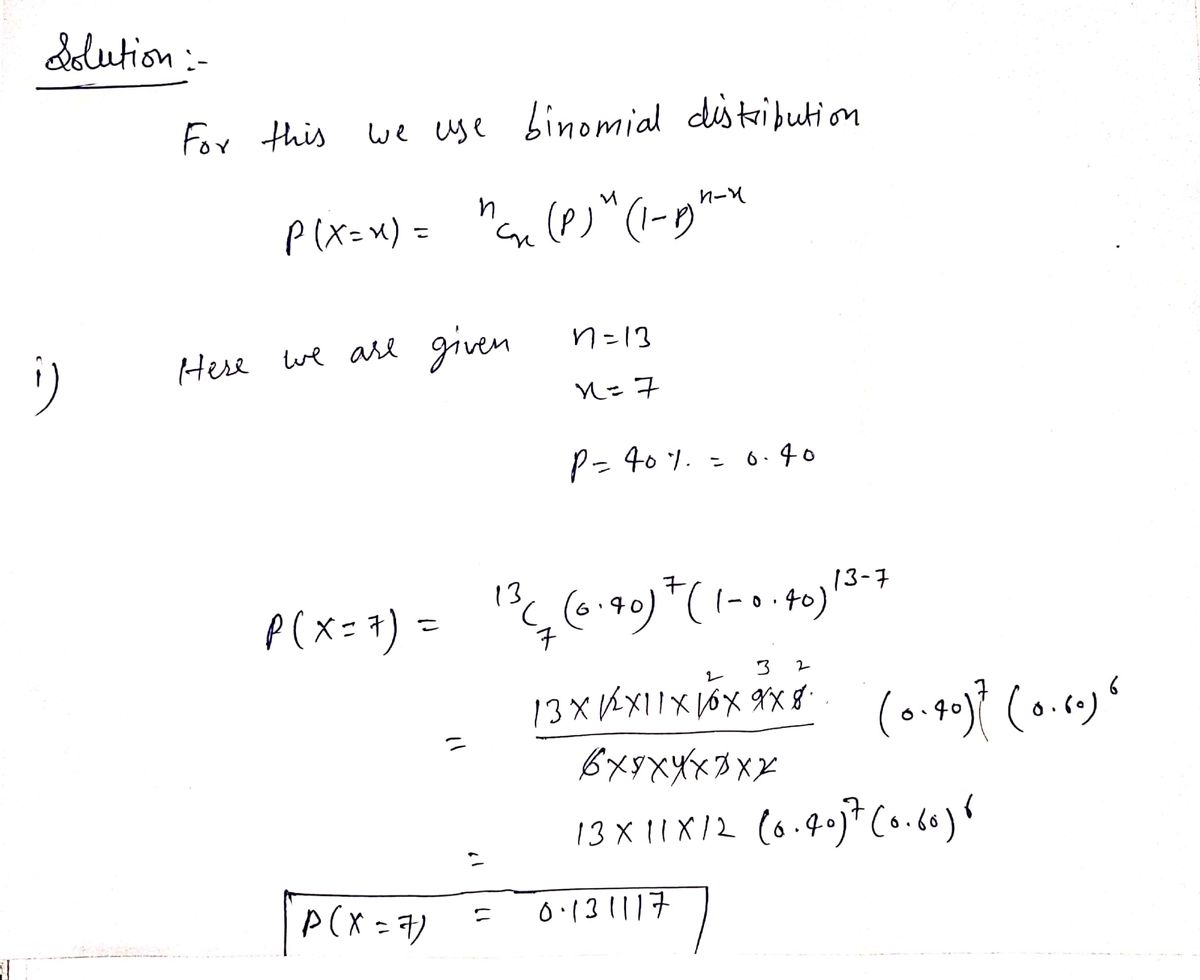 Solution :-
For this we use binomial distribution
P(X=x) = ⁿCₓ (P)ˣ (1-P)ⁿ⁻ˣ
i) Here we are given n=13
x=7
P= 40 %. = 0.40
P(X=7) = ¹³C₇ (0.40)⁷ (1-0.40)¹³⁻⁷
2 3 2
= 13×12×11×10×9×8 / 6×5×4×3×2 (0.40)⁷ (0.60)⁶
= 13×11×12 (0.40)⁷ (0.60)⁶
P(X=7) = 0.131117